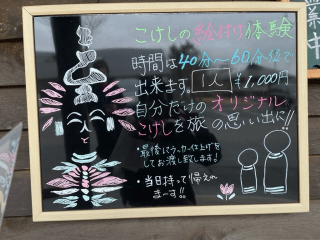 こけしの絵付け体験
時間は40分〜60分位で
出来ます。1人 ¥1,000円
自分だけのオリジナル
こけしを旅の思い出に!!
・最後にラッカー仕上げを
してお渡し致します!
・当日持って帰れ
ま〜す!!